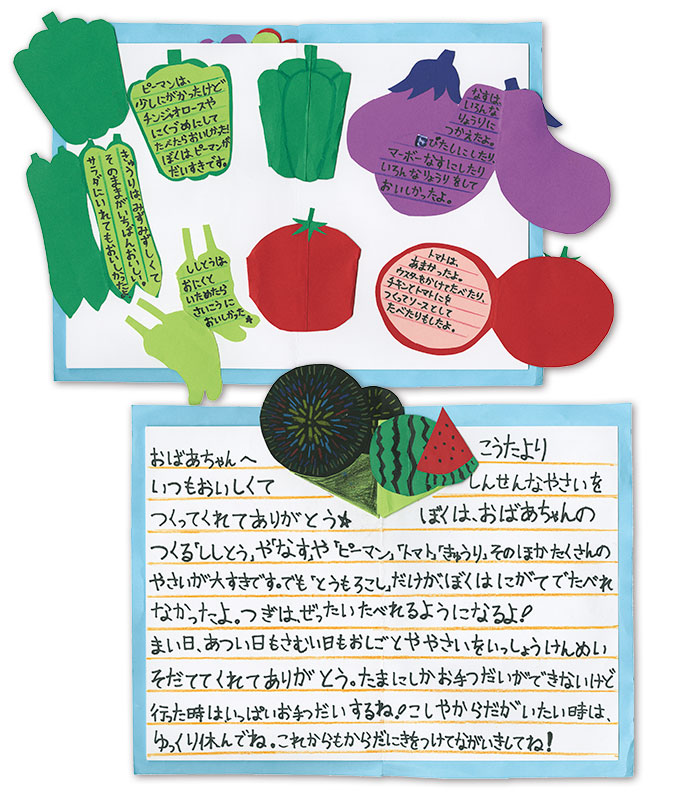 ピーマンは、
少しにがかったけど
チンジオロースや
にくづめにして
たべたらおいしかった!
ぼくは、ピーマンが
だいすきです。
なすは、
いろんな
りょうりに
つかえたよ。
びたしにしたり、
マーボーなすにしたり
いろんなりょうりをして
おいしかったよ。
きゅうりは、みずみずしくて
そのままがいちばんおいしい。
サラダにいれてもおいしかったよ
ししとうは、
おにくと
いためたら
さいこうに
おいしかった☆
トマトは、
あまかったよ。
ウスターをかけてたべたり、
チキンとトマトにを
つくってソースとして
たべたりもしたよ。
おばあちゃんへ こうたより
いつもおいしくて しんせんなやさいを
つくってくれてありがとう☆ ぼくは、おばあちゃんの
つくる「ししとう」や「なす」や「ピーマン」、「トマト」「きゅうり」、そのほかたくさんの
やさいが大すきです。でも「とうもろこし」だけが、ぼくはにがてでたべれ
なかったよ。つぎは、ぜったいたべれるようになるよ!
まい日、あつい日もさむい日もおしごとややさいをいっしょうけんめい
そだててくれてありがとう。たまにしかお手つだいができないけど
行った時は、いっぱいお手つだいするね!こしやからだがいたい時は、
ゆっくり休んでね。これからもからだにきをつけてながいきしてね!